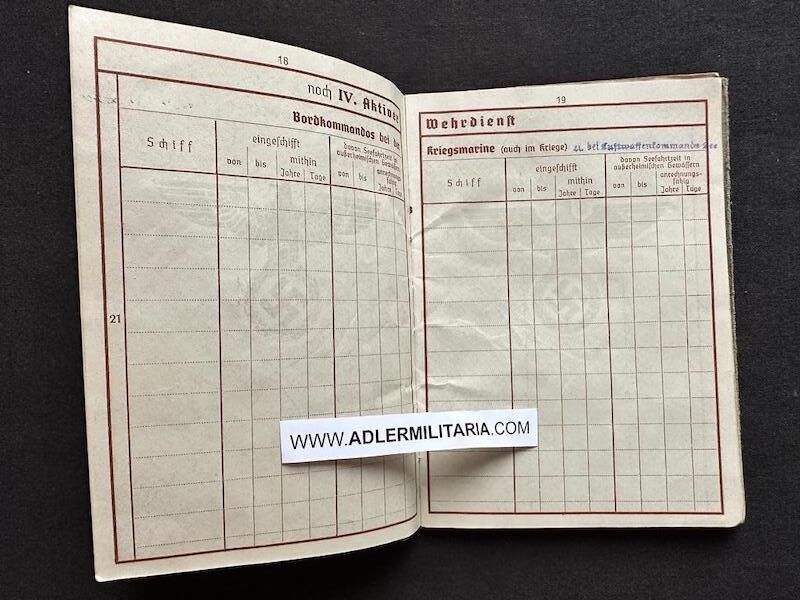 18
noch IV. Aktiver
Bordkommandos bei der
Schiff
eingeschifft
davon Seefahrtzeit in
außerheimischen Gewässern
von
bis
mithin
Jahre
Tage
von
bis
anrechnungs-
fähig
Jahre
Tage
21
19
Wehrdienst
Kriegsmarine (auch im Kriege) u. bei Luftwaffenkommando See
Schiff
eingeschifft
davon Seefahrtzeit in
außerheimischen Gewässern
von
bis
mithin
Jahre
Tage
von
bis
anrechnungs-
fähig
Jahre
Tage
WWW.ADLERMILITARIA.COM